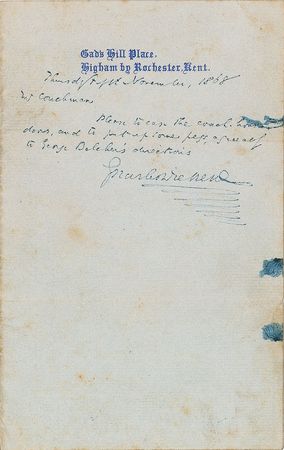 Gad's Hill Place,
Higham by Rochester, Kent.
Thursday November, 1868
Mr Couchman
Please to ease the coach house
doors, and to put up some pegs, agreeably
to George Belcher's directions
Charles Dickens